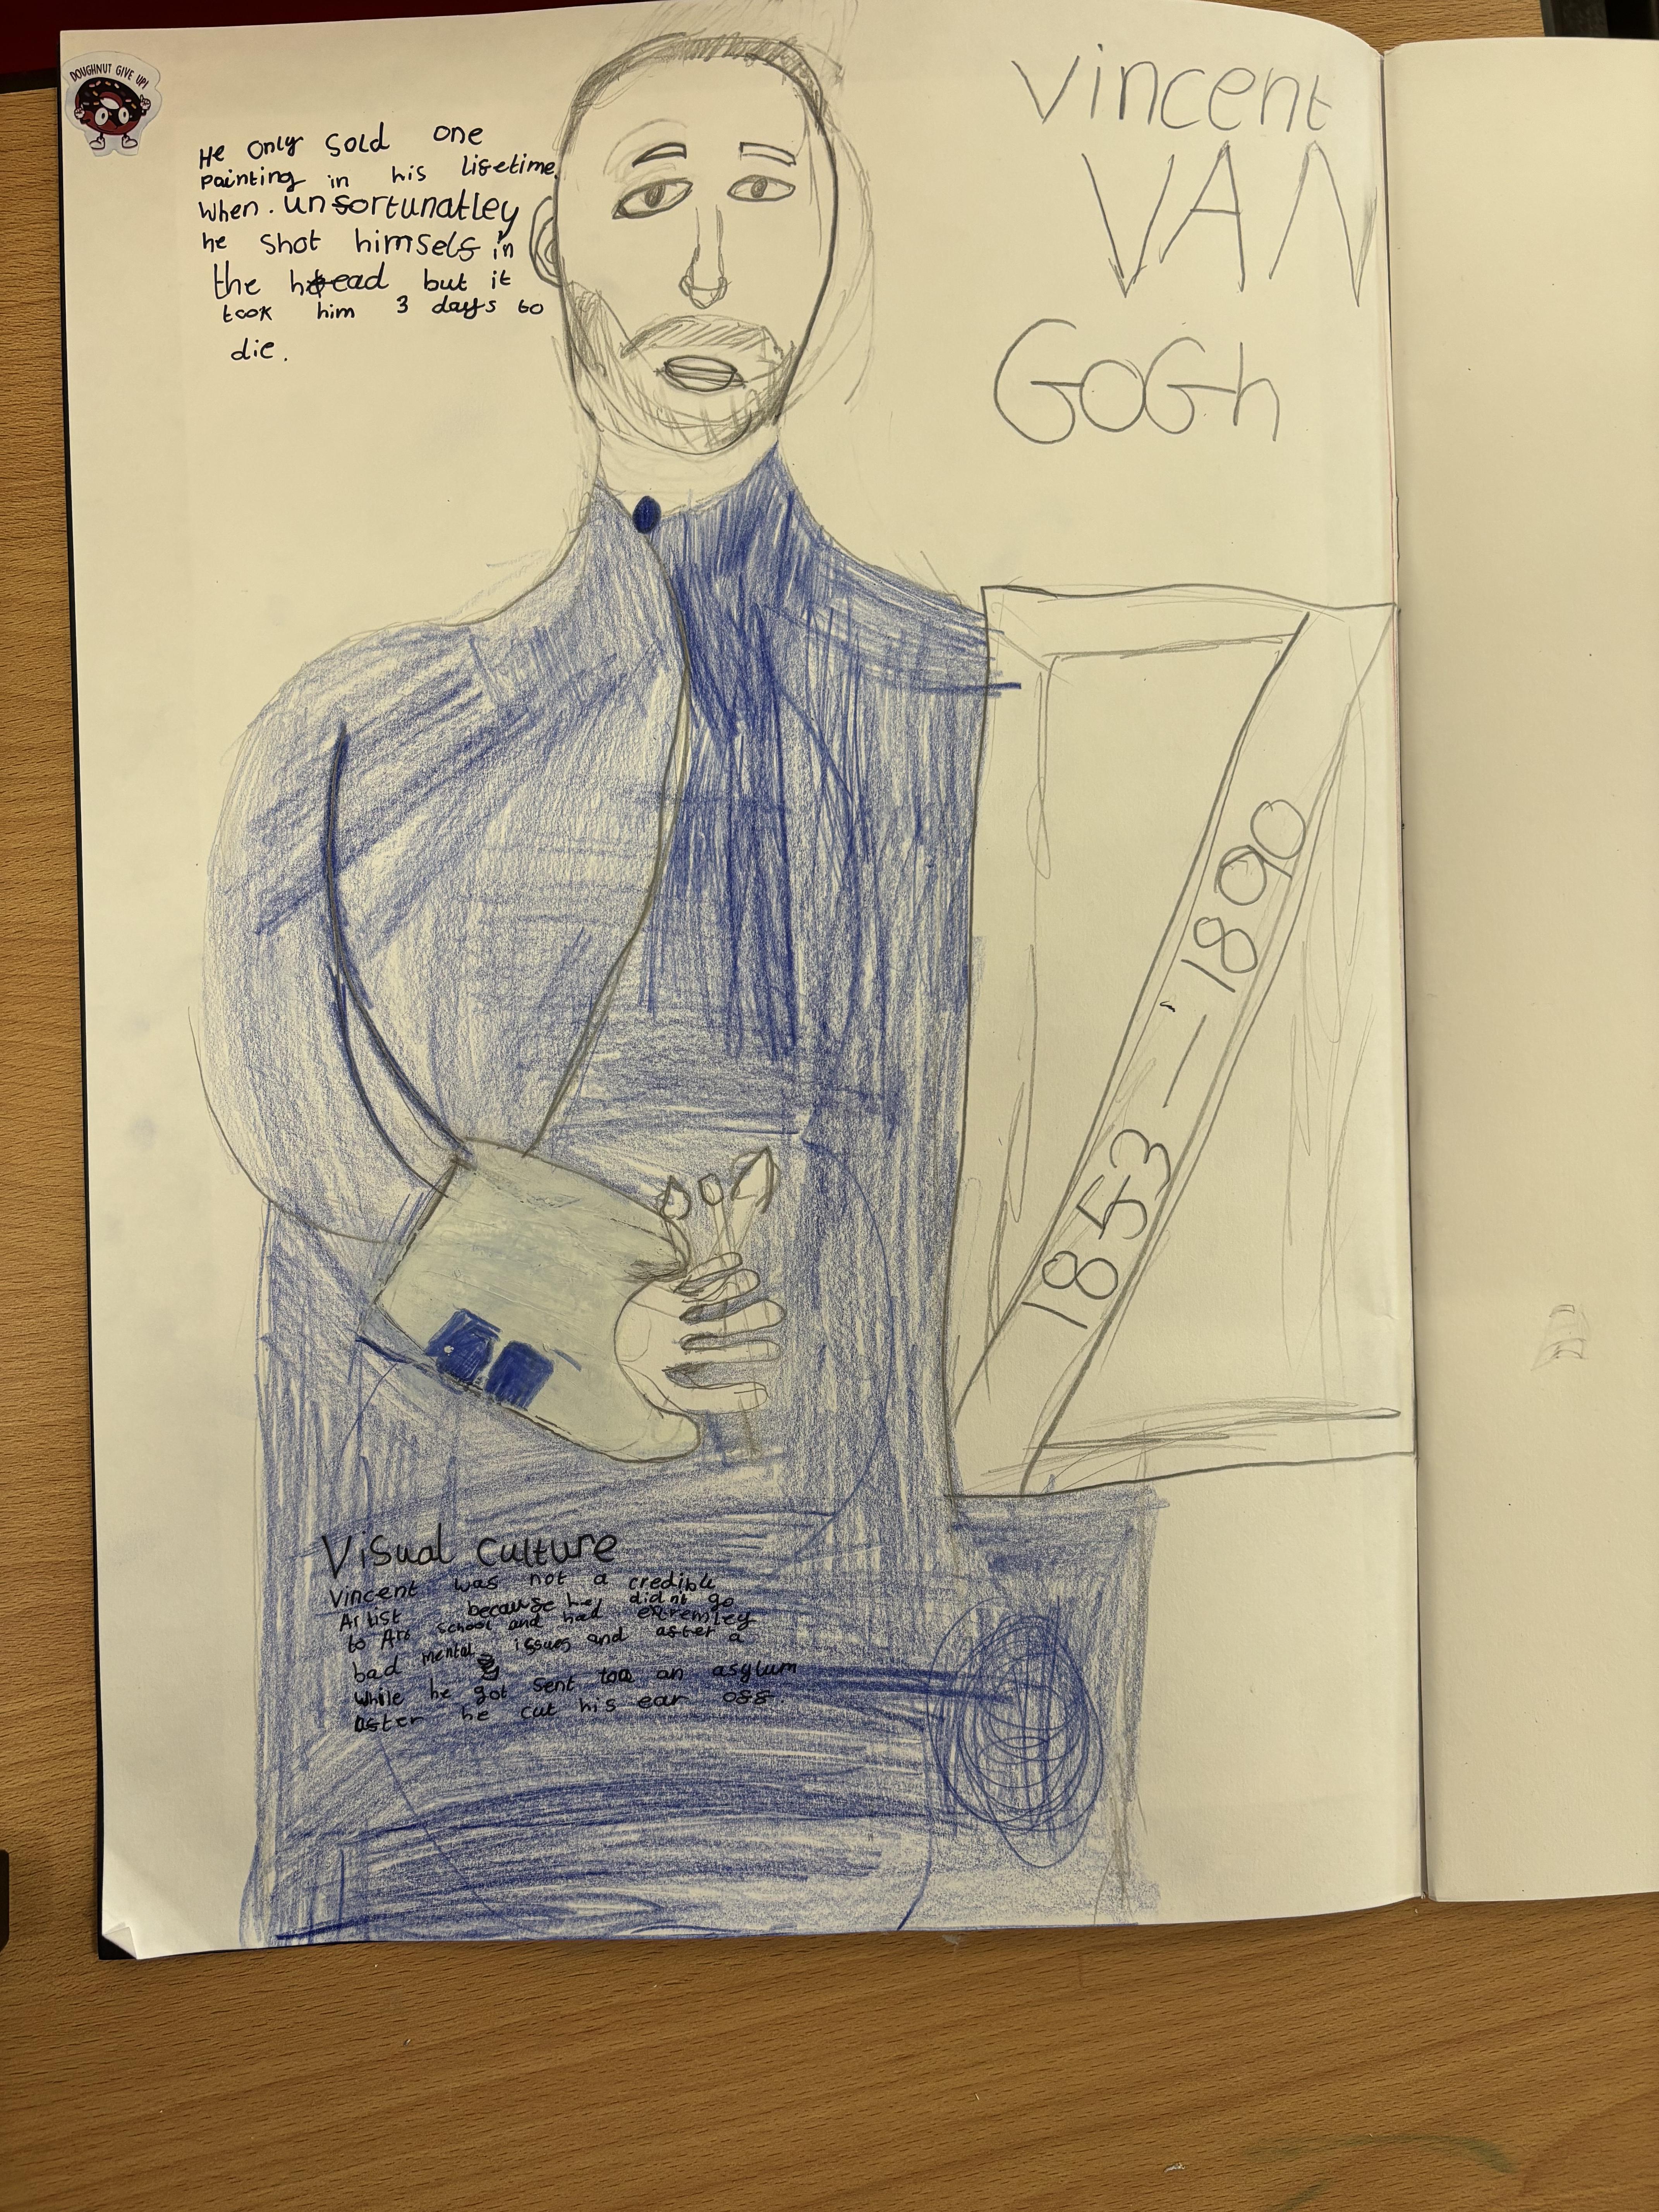 DOUGHNUT GIVE UP!
He only sold one
painting in his lifetime.
When. unfortunatley
he shot himself in
the head but it
took him 3 days to
die.
Vincent
VAN
GoGh
1853 – 1890
Visual culture
Vincent was not a credible
Artist because he didn't go
to Art school and had extremley
bad mental issues and after a
while he got sent too an asylum
after he cut his ear off.